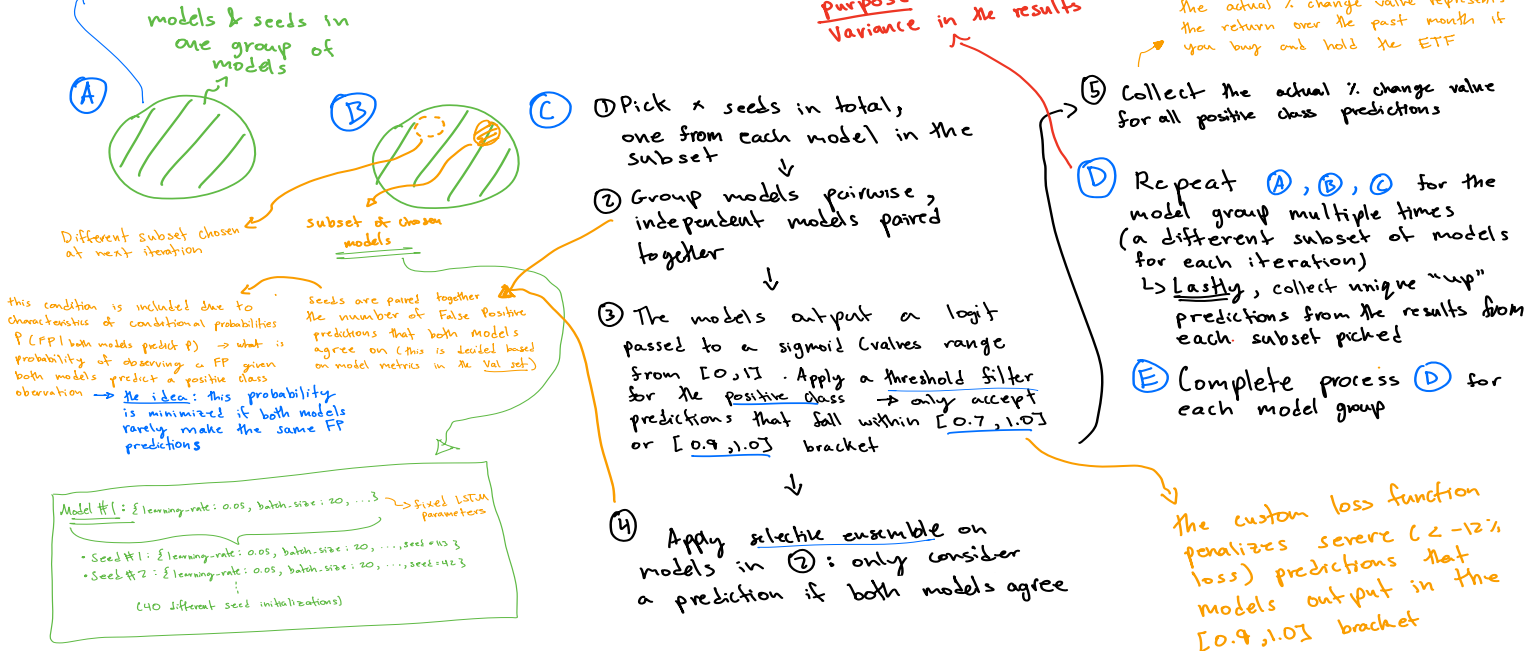 models & seeds in
one group of
models
A
B
Different subset chosen
at next iteration
subset of chosen
models
this condition is included due to
characteristics of conditional probabilities
P(FP | both models predict P) → what is
probability of observing a FP given
both models predict a positive class
obervation → the idea: this probability
is minimized if both models
rarely make the same FP
predictions
Seeds are paired together
the number of False Positive
predictions that both models
agree on (this is decided based
on model metrics in the Val set)
Model #1: {learning-rate: 0.05, batch-size: 20, ...}
→ fixed LSTM
parameters
• Seed #1: {learning-rate: 0.05, batch-size: 20, ..., seed=113}
• Seed #2: {learning-rate: 0.05, batch-size: 20, ..., seed=42}
(40 different seed initializations)
C
① Pick x seeds in total,
one from each model in the
subset
② Group models pairwise,
independent models paired
together
③ The models output a logit
passed to a sigmoid (values range
from [0,1]. Apply a threshold filter
for the positive class → only accept
predictions that fall within [0.7,1.0]
or [0.9,1.0] bracket
④ Apply selective ensemble on
models in ②: only consider
a prediction if both models agree
purpose
Variance in the results
the actual % change value represents
the return over the past month if
you buy and hold the ETF
⑤ Collect the actual % change value
for all positive class predictions
D Repeat A, B, C for the
model group multiple times
(a different subset of models
for each iteration)
↳ Lastly, collect unique "up"
predictions from the results from
each subset picked
E Complete process D for
each model group
the custom loss function
penalizes severe (< -12%
loss) predictions that
models output in the
[0.9,1.0] bracket